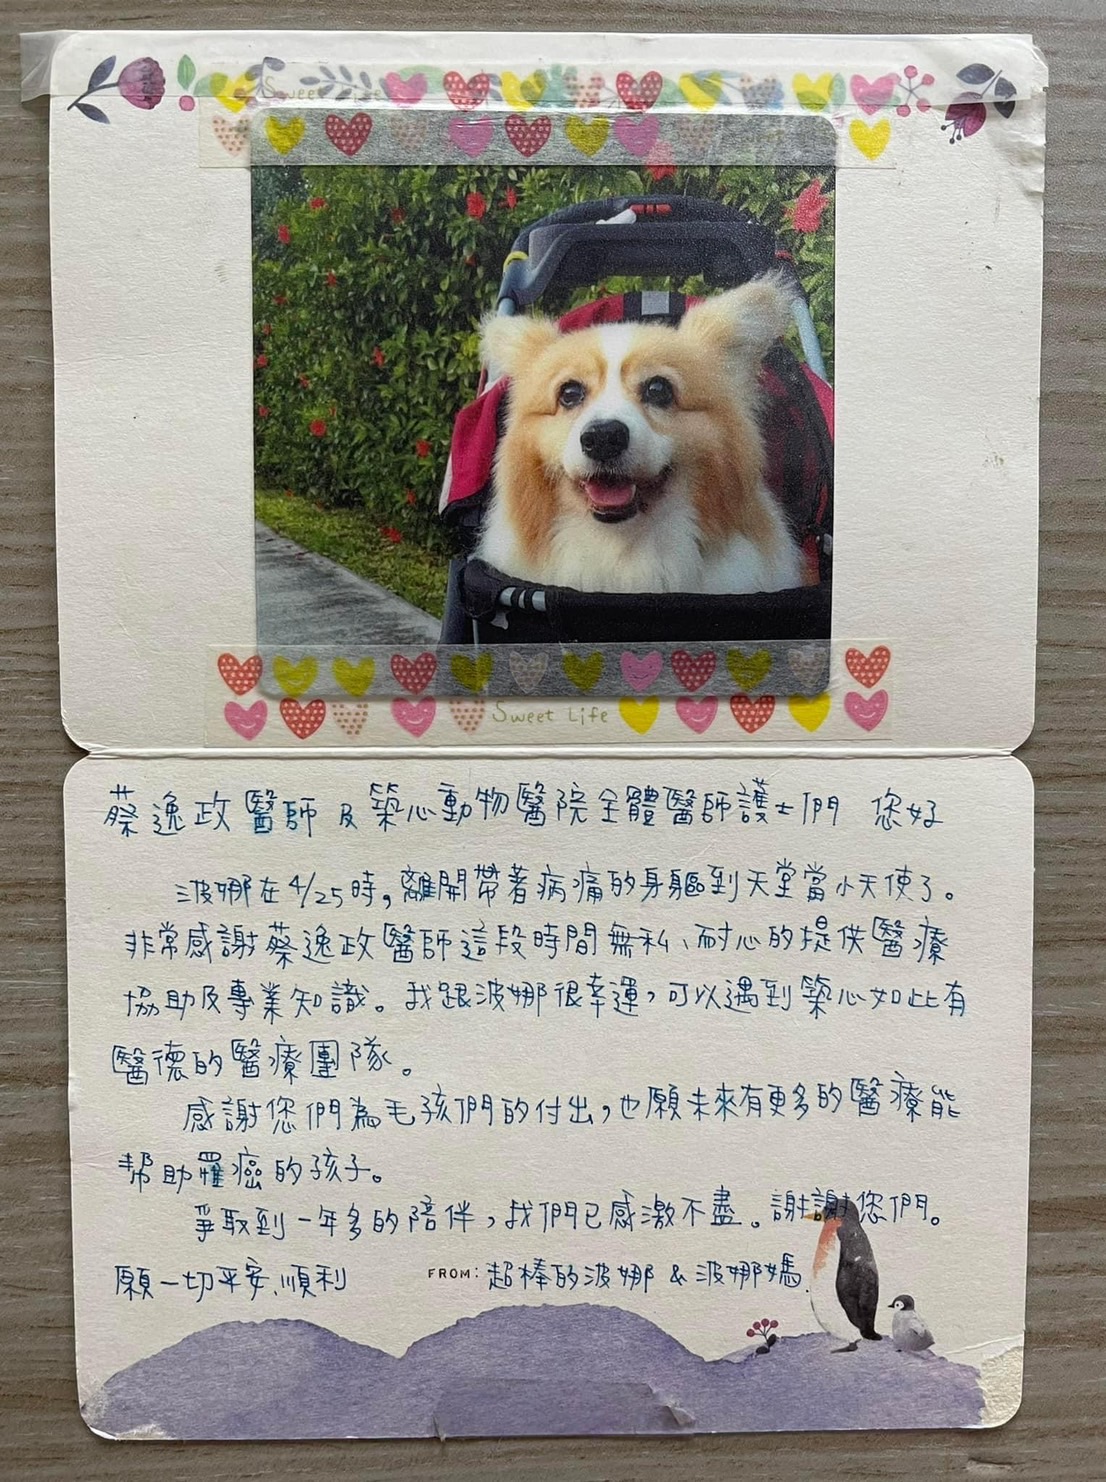 Sweet Life
Sweet Life
蔡逸政醫師及築心動物醫院全體醫師護士們 您好
波娜在4/25時,離開帶著病痛的身軀到天堂當小天使了。
非常感謝蔡逸政醫師這段時間無私、耐心的提供醫療
協助及專業知識。我跟波娜很幸運,可以遇到築心如此有
醫德的醫療團隊。
感謝您們為毛孩們的付出,也願未來有更多的醫療能
幫助罹癌的孩子。
爭取到一年多的陪伴,我們已感激不盡。謝謝您們。
願一切平安、順利 FROM: 超棒的波娜 & 波娜媽.